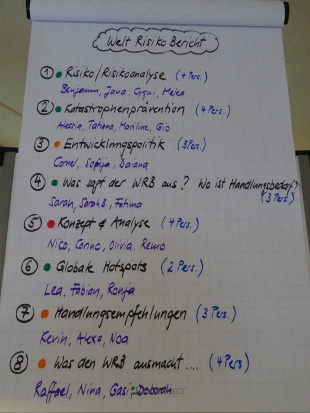 Welt Risiko Bericht
① Risiko/Risikoanalyse (4 Pers.)
Benjamin, Jana, Meica
② Katastrophenprävention (4 Pers.)
Alessia, Tatiana, Gio
③ Entwicklungspolitik (3 Pers.)
Cornel, Daiana
④ Was sagt der WRB aus? Wo ist Handlungsbedarf?
(3 Pers.)
Sarah, Sarah B., Fatima
⑤ Konzept & Analyse (4 Pers.)
Nico, Olivia, Remo
⑥ Globale Hotspots (2 Pers.)
Lea, Fabian, Ronja
⑦ Handlungsempfehlungen (3 Pers.)
Kevin, Alexa, Noa
⑧ Was den WRB ausmacht.... (4 Pers.)
Raffael, Nina, Gasi, Deborah